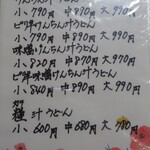 けんちん汁うどん
小790円 中890円 大990円
ピリ辛けんちん汁うどん
小790円 中890円 大990円
味噌けんちん汁うどん
小820円 中870円 大970円
ピリ辛味噌けんちん汁うどん
小840円 中890円 大990円
汁うどん
小600円 中680円 大780円